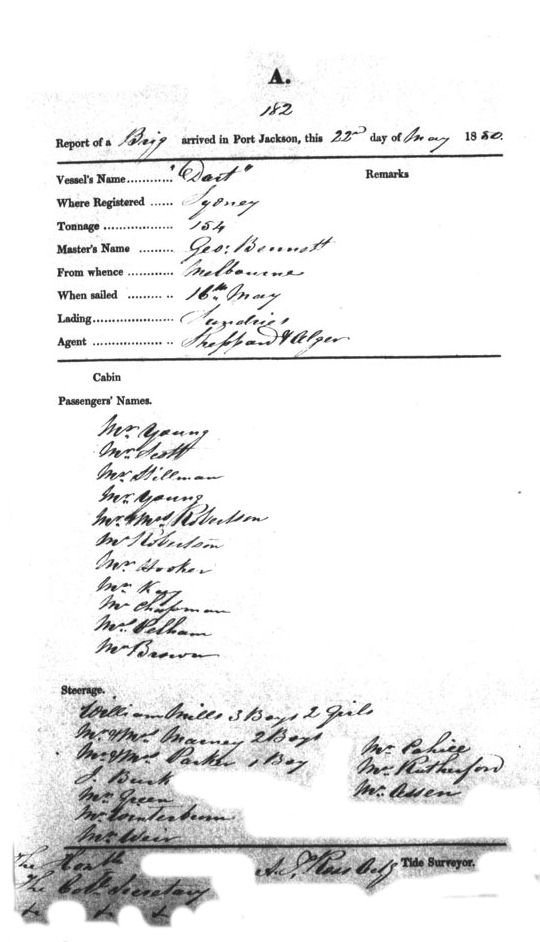 A.
182
Report of a Brig arrived in Port Jackson, this 22nd day of May 1850.
Vessel's Name ............ "Dart" Remarks
Where Registered ...... Sydney
Tonnage .................. 154
Master's Name ......... Geo. Bennett
From whence ............... Melbourne
When sailed ......... .. 16th May
Lading..................... Sundries
Agent .................... .. Sheppard & Alger
Cabin
Passengers' Names.
Mr. Young
Mr. Scott
Mr. Stillman
Mr. Young
Mr. & Mrs. Robertson
Mr Robertson
Mr. Hooker
Mr. Kay
Mr Chapman
Mrs. Pelham
Mr Brown
Steerage.
William Mills 3 Boys 2 Girls
Mr. & Mrs. Marney 2 Boys
Mr. & Mrs. Parker 1 Boy Mr. Cahill
J. Buck Mr. Rutherford
Mr. Green Mr. Assen
Mr. Winterburn
Mr. Weir
The Honble A. Ross Tide Surveyor.
The Coll. Secretary
& & &